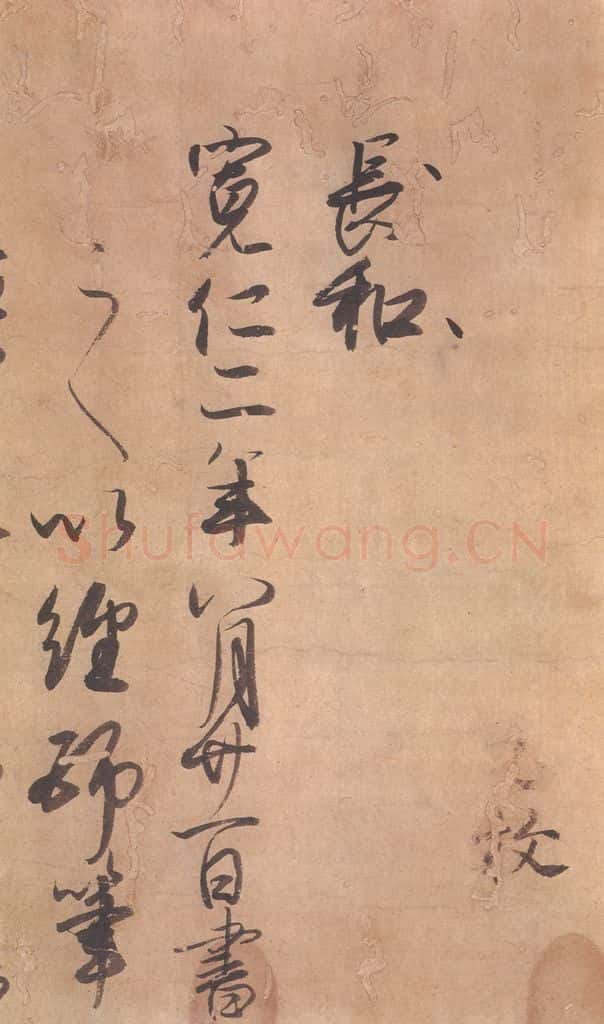 長和、
寛仁二年八月廿一日書
之以經師筆
Shufawang.CN